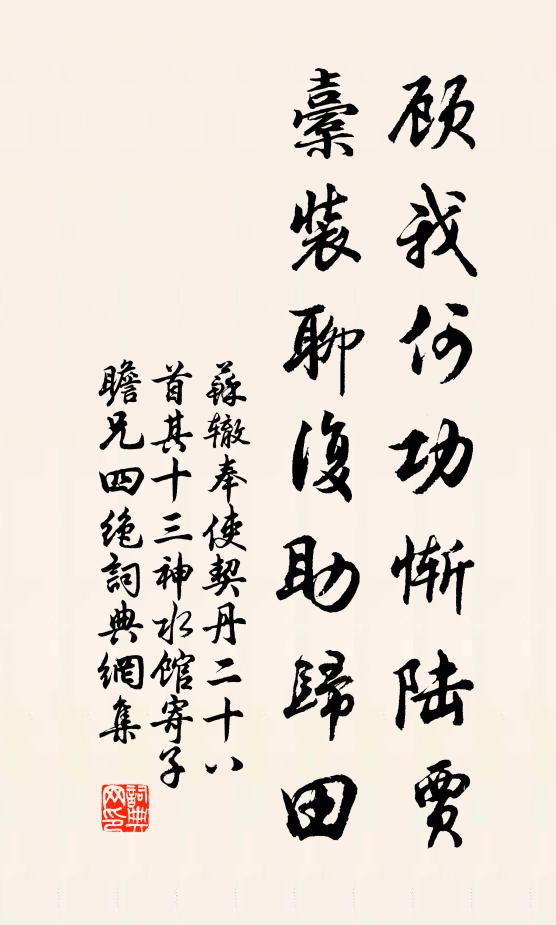 顾我何功惭陆贾
橐装聊復助歸田
蘇辙奉使契丹二十八
首其十三神水馆寄子
瞻兄四绝詞典網集
詞典
网印